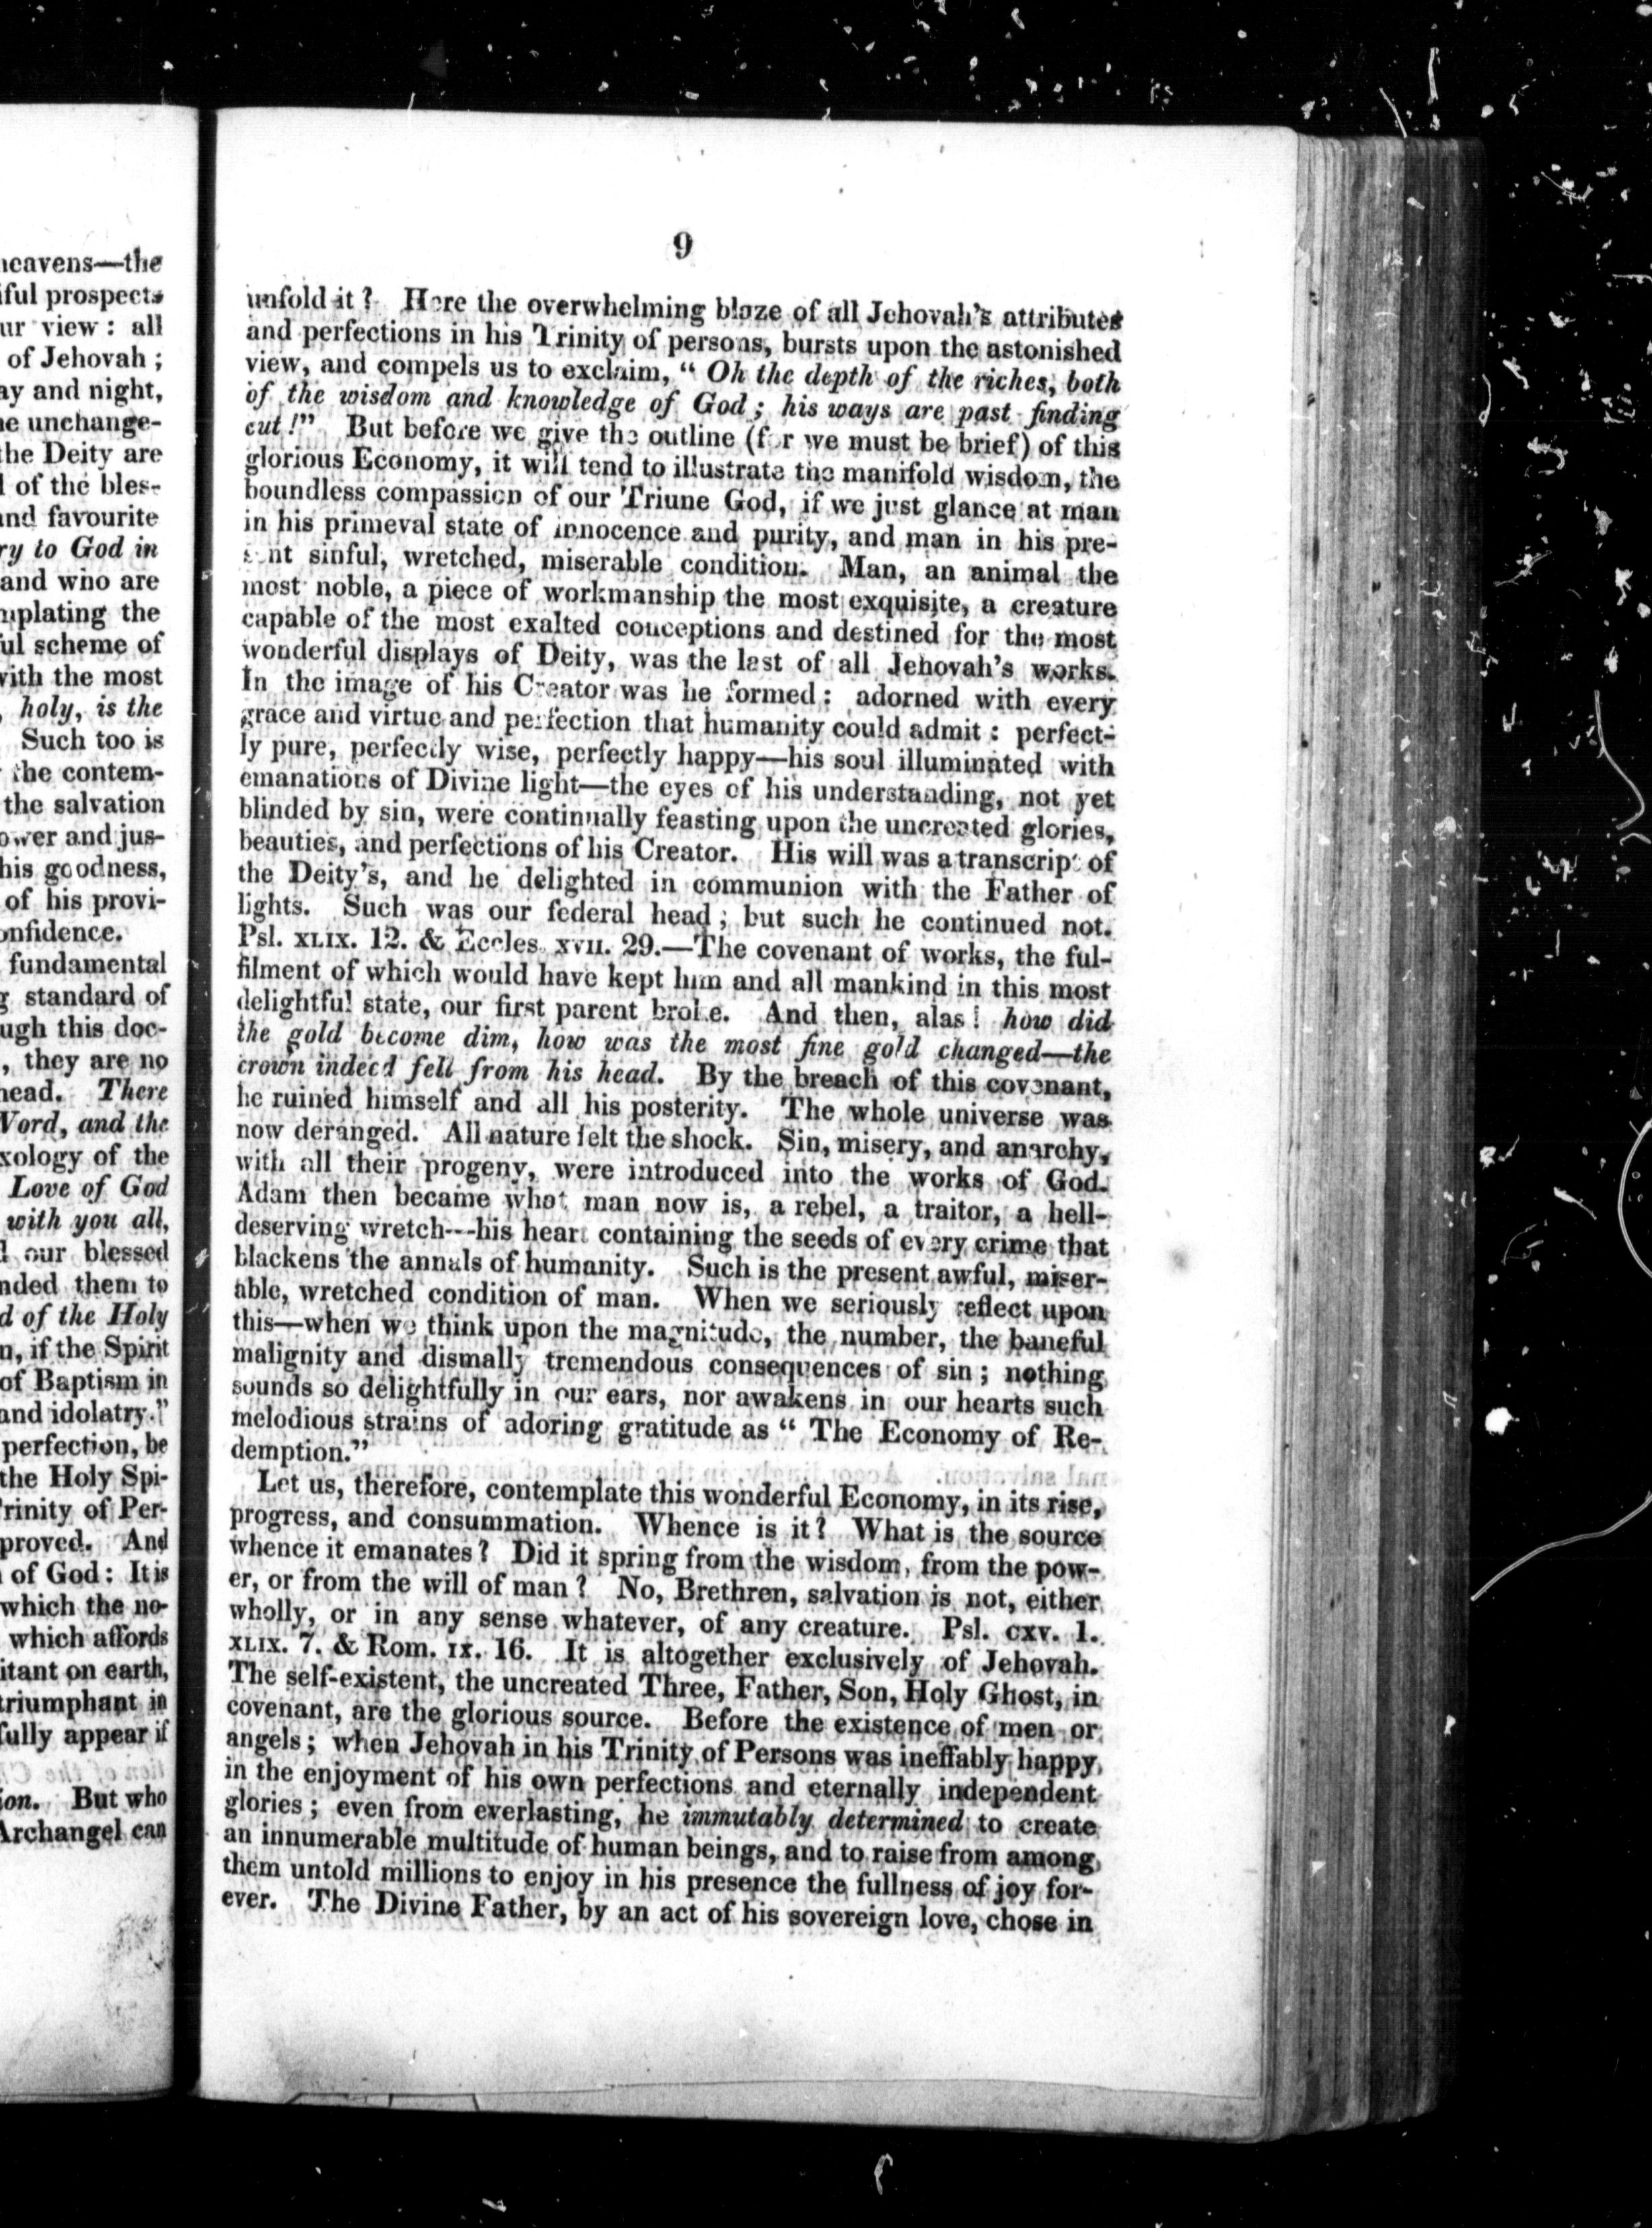 heavens—the
iful prospects
ur view: all
of Jehovah;
ay and night,
e unchange-
the Deity are
l of the bles-
and favourite
ry to God in
and who are
mplating the
ul scheme of
with the most
, holy, is the
Such too is
the contem-
the salvation
ower and jus-
his goodness,
of his provi-
onfidence.
fundamental
g standard of
ugh this doc-
, they are no
head. There
Word, and the
xology of the
Love of God
with you all,
d our blessed
nded them to
d of the Holy
n, if the Spirit
of Baptism in
and idolatry."
perfection, be
the Holy Spi-
Trinity of Per-
proved. And
of God: It is
which the no-
which affords
itant on earth,
triumphant in
fully appear if
ion. But who
Archangel can
9
unfold it? Here the overwhelming blaze of all Jehovah's attributes
and perfections in his Trinity of persons, bursts upon the astonished
view, and compels us to exclaim, " Oh the depth of the riches, both
of the wisdom and knowledge of God; his ways are past finding
out!" But before we give the outline (for we must be brief) of this
glorious Economy, it will tend to illustrate the manifold wisdom, the
boundless compassion of our Triune God, if we just glance at man
in his primeval state of innocence and purity, and man in his pre-
sent sinful, wretched, miserable condition. Man, an animal the
most noble, a piece of workmanship the most exquisite, a creature
capable of the most exalted conceptions and destined for the most
wonderful displays of Deity, was the last of all Jehovah's works.
In the image of his Creator was he formed: adorned with every
grace and virtue and perfection that humanity could admit: perfect-
ly pure, perfectly wise, perfectly happy—his soul illuminated with
emanations of Divine light—the eyes of his understanding, not yet
blinded by sin, were continually feasting upon the uncreated glories,
beauties, and perfections of his Creator. His will was a transcript of
the Deity's, and he delighted in communion with the Father of
lights. Such was our federal head; but such he continued not.
Psl. XLIX. 12. & Eccles. XVII. 29.—The covenant of works, the ful-
filment of which would have kept him and all mankind in this most
delightful state, our first parent broke. And then, alas! how did
the gold become dim, how was the most fine gold changed—the
crown indeed fell from his head. By the breach of this covenant,
he ruined himself and all his posterity. The whole universe was
now deranged. All nature felt the shock. Sin, misery, and anarchy,
with all their progeny, were introduced into the works of God.
Adam then became what man now is, a rebel, a traitor, a hell-
deserving wretch---his heart containing the seeds of every crime that
blackens the annals of humanity. Such is the present awful, miser-
able, wretched condition of man. When we seriously reflect upon
this—when we think upon the magnitude, the number, the baneful
malignity and dismally tremendous consequences of sin; nothing
sounds so delightfully in our ears, nor awakens in our hearts such
melodious strains of adoring gratitude as " The Economy of Re-
demption."
Let us, therefore, contemplate this wonderful Economy, in its rise,
progress, and consummation. Whence is it? What is the source
whence it emanates? Did it spring from the wisdom, from the pow-
er, or from the will of man? No, Brethren, salvation is not, either
wholly, or in any sense whatever, of any creature. Psl. CXV. 1.
XLIX. 7. & Rom. IX. 16. It is altogether exclusively of Jehovah.
The self-existent, the uncreated Three, Father, Son, Holy Ghost, in
covenant, are the glorious source. Before the existence of men or
angels; when Jehovah in his Trinity of Persons was ineffably happy
in the enjoyment of his own perfections and eternally independent
glories; even from everlasting, he immutably determined to create
an innumerable multitude of human beings, and to raise from among
them untold millions to enjoy in his presence the fullness of joy for-
ever. The Divine Father, by an act of his sovereign love, chose in